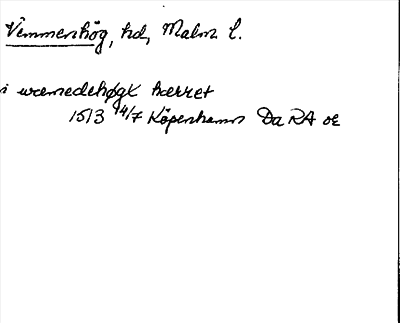 Vemmenhög, hd, Malm. l.
i wemedehøgx hærret
1513 14/7 Köpenhamn Da RA oe